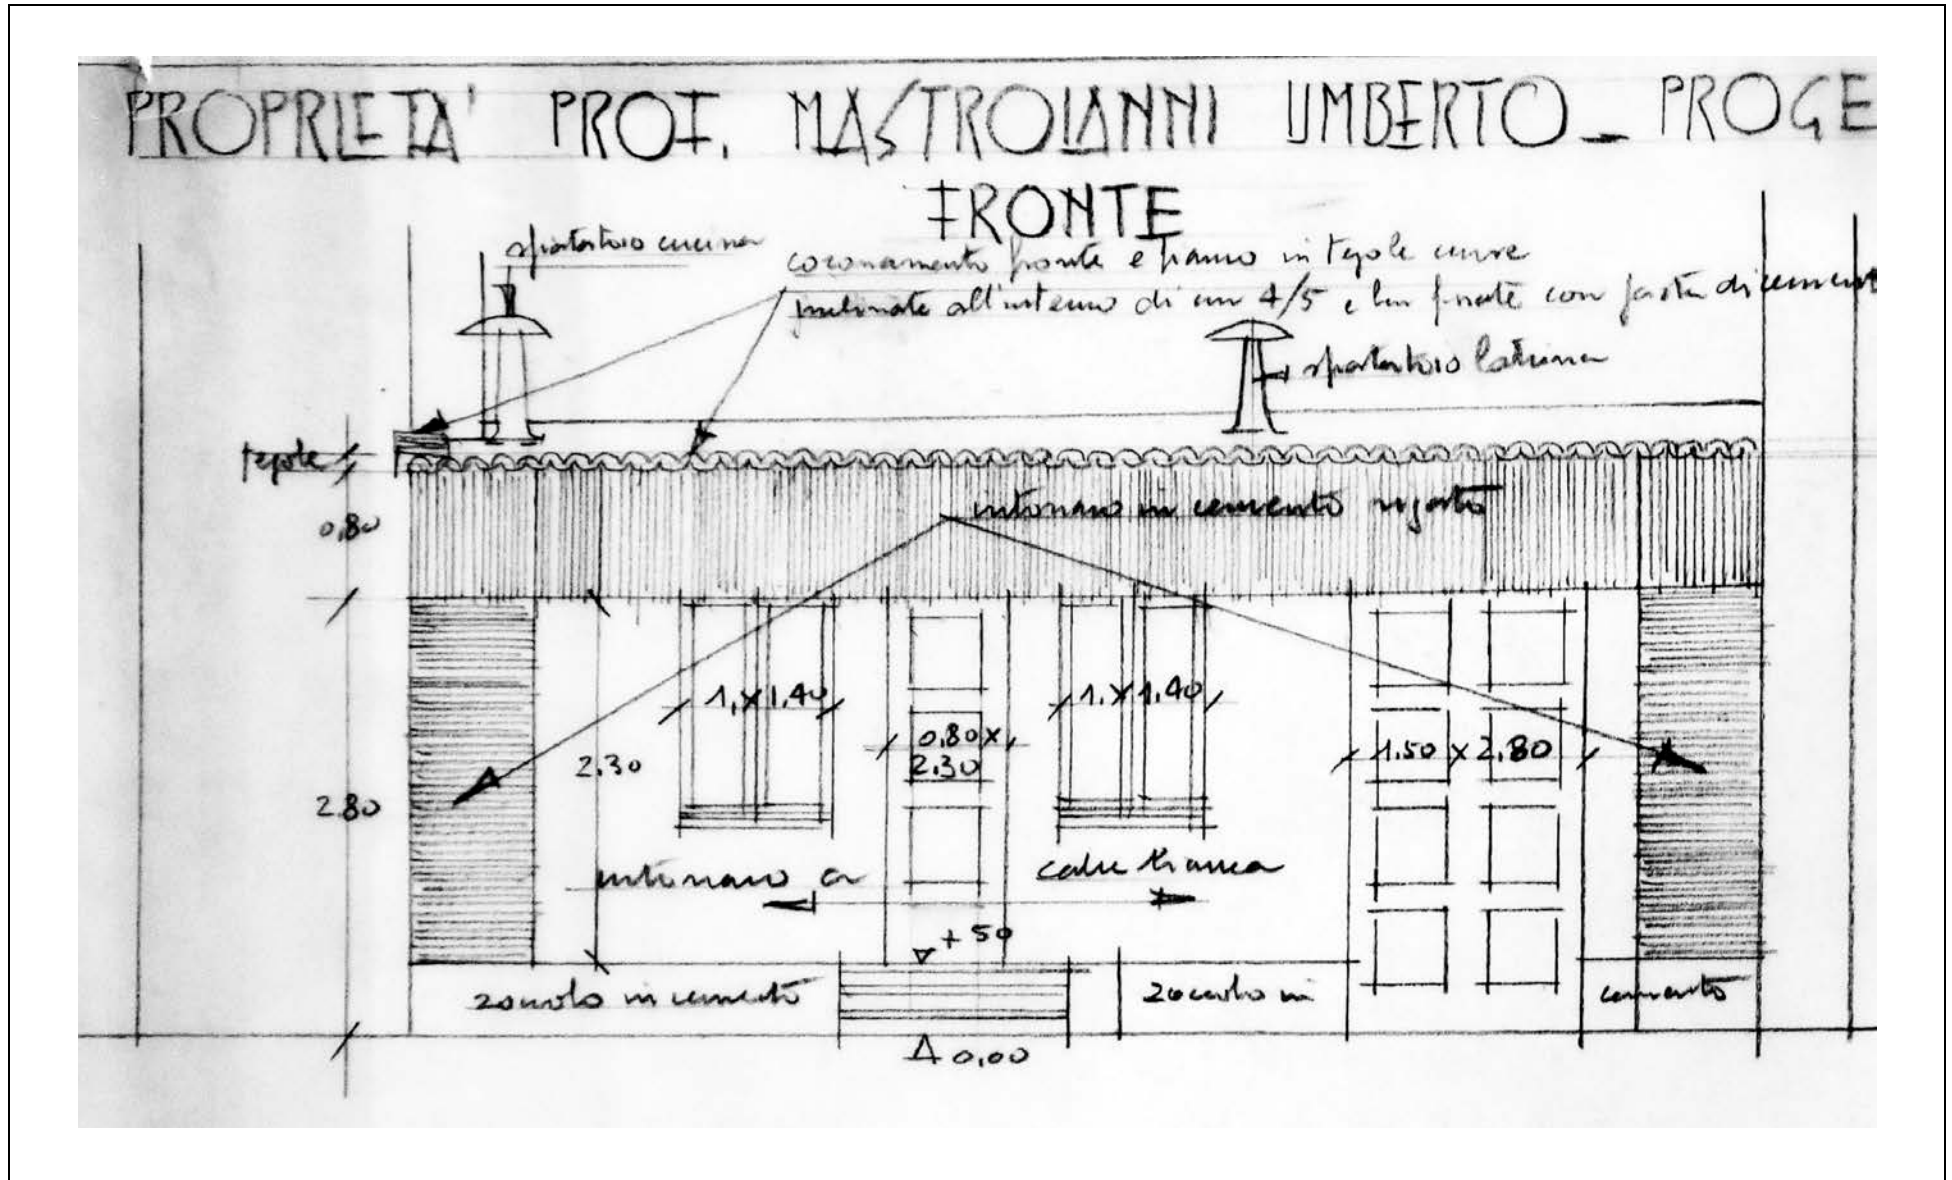 PROPRIETA' PROF. MASTROIANNI UMBERTO - PROGE
FRONTE
sfiatatoio cucina
coronamento fronte e fianco in tegole curve
inclinate all'interno di un 4/5 e ben finite con pasta di cement
sfiatatoio latrina
tegole
intonaco in cemento rigato
0,80
1, x 1,40
1, x 1,40
0,80 x
2,30
1,50 x 2,80
2,30
2,80
intonaco a calce bianca
+50
zoccolo in cemento
zoccolo in cemento
0,00